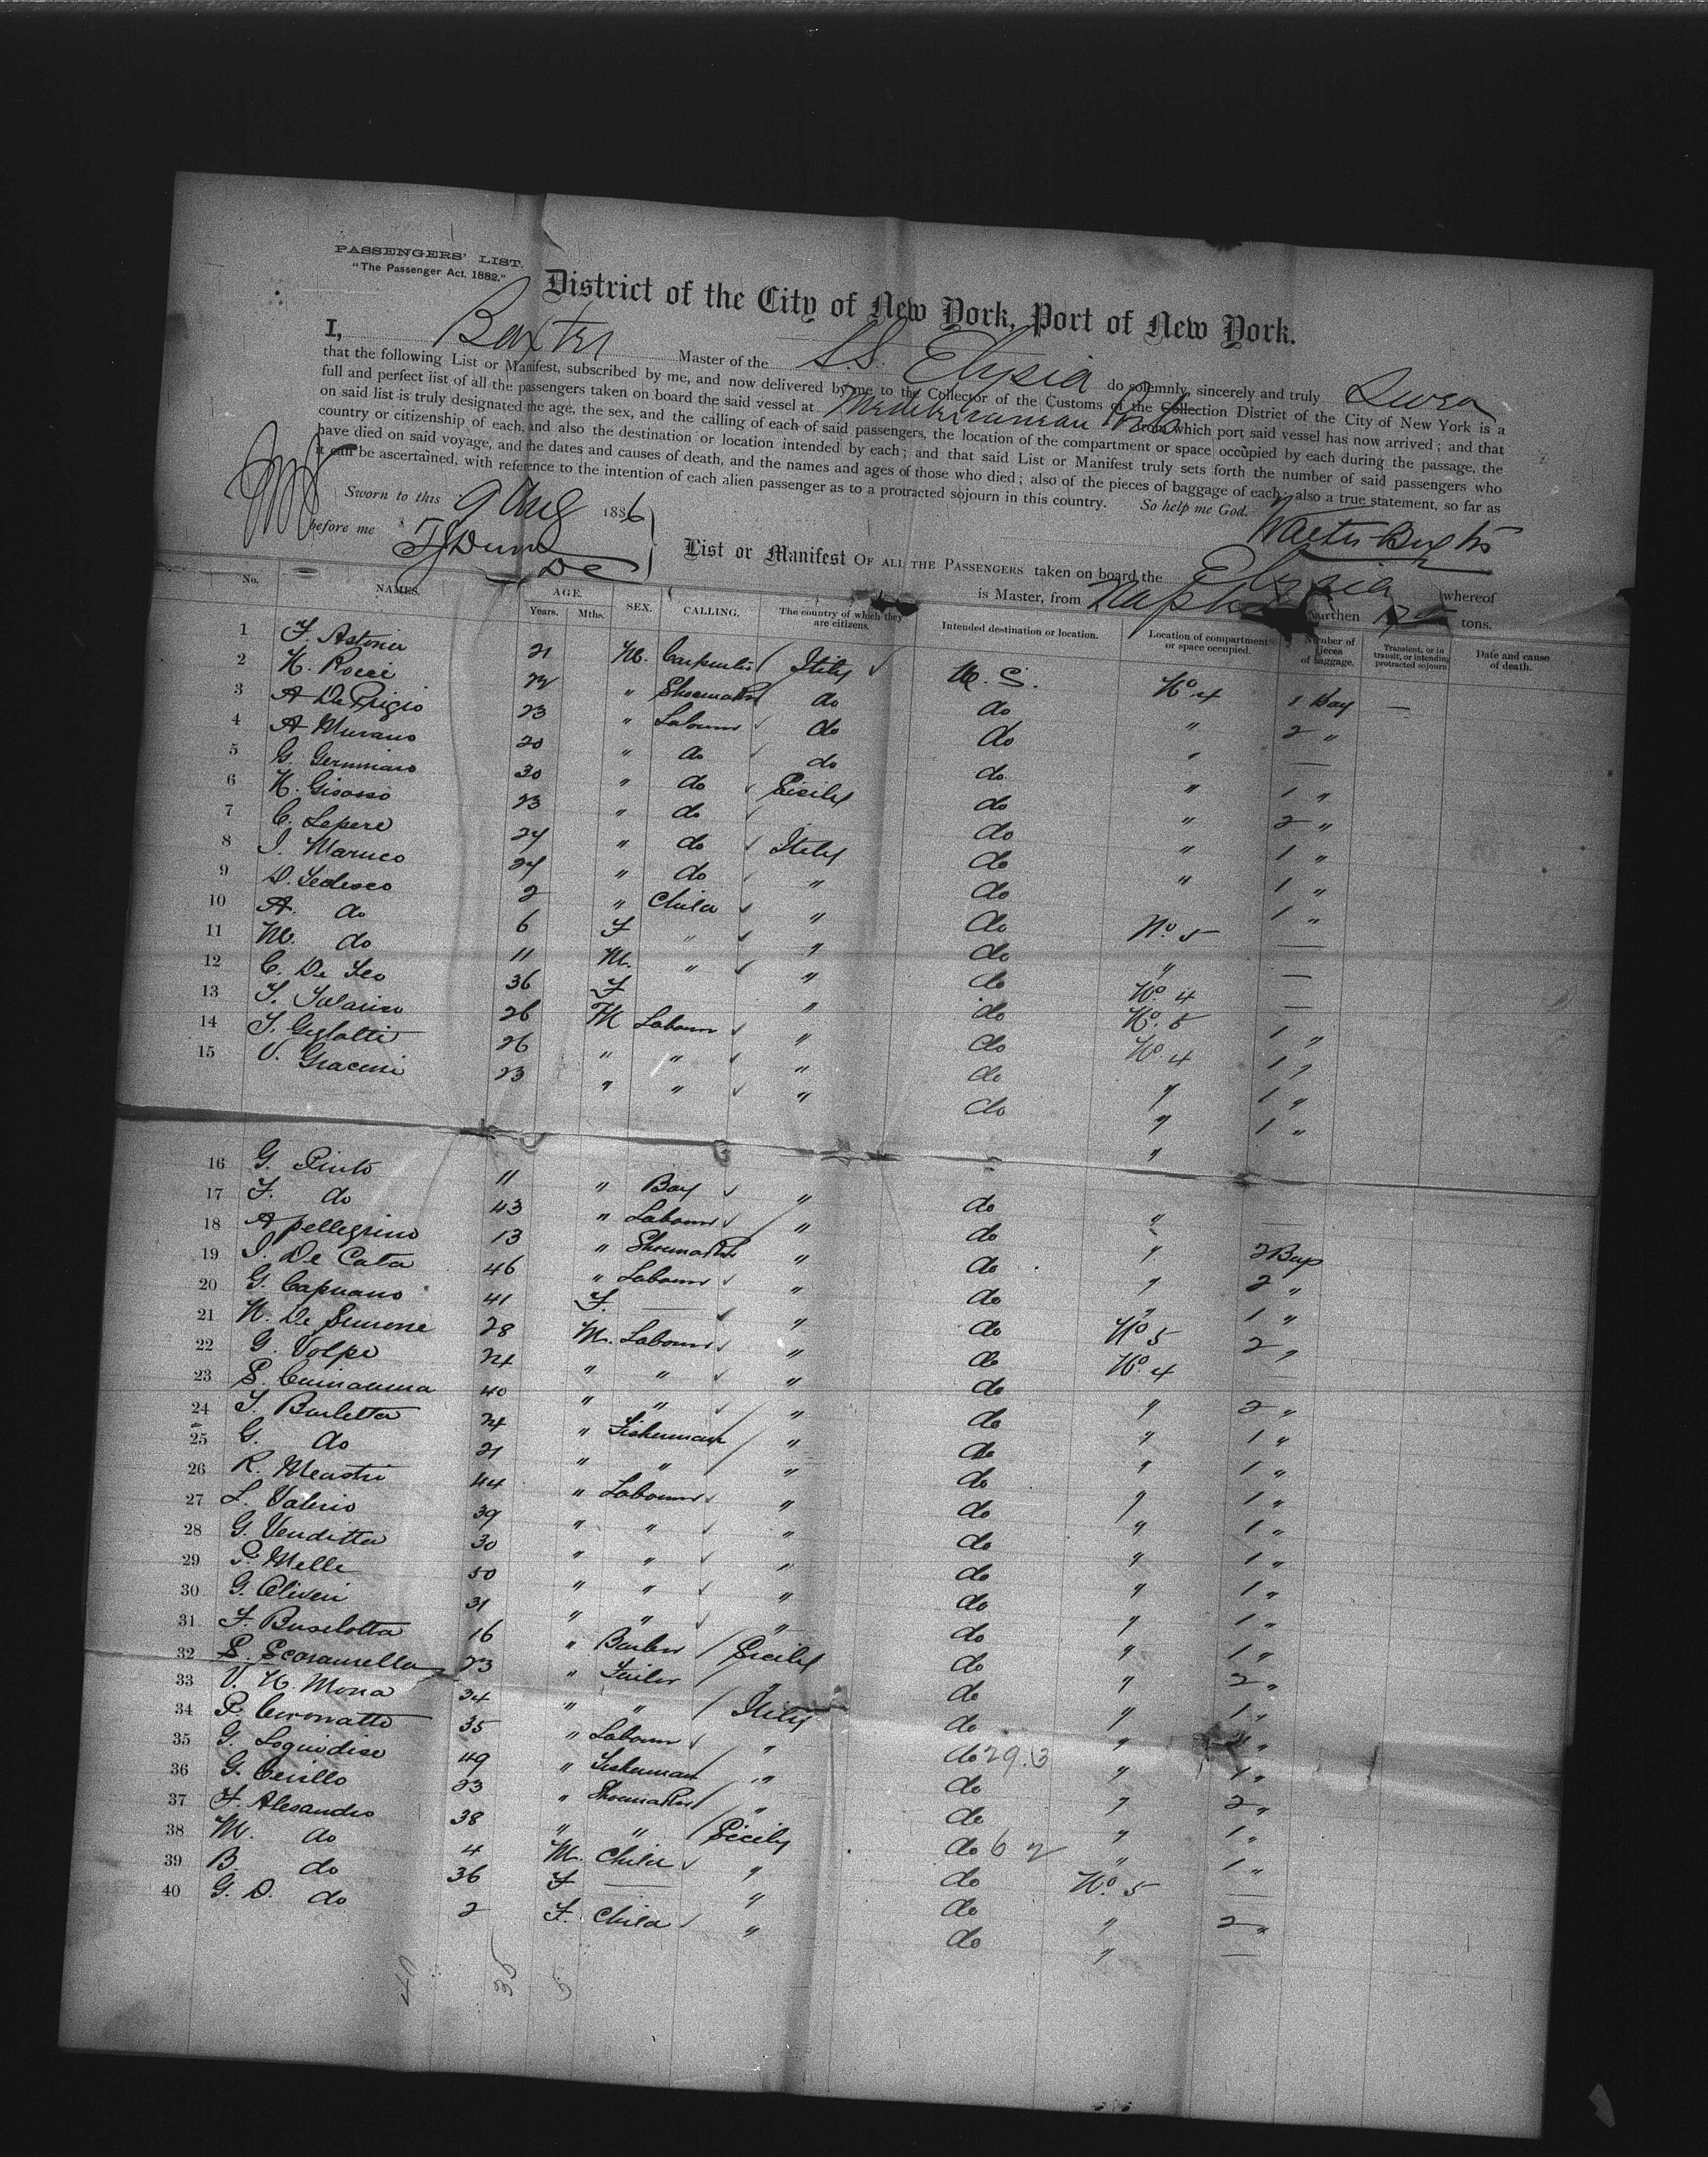 PASSENGERS' LIST.
"The Passenger Act, 1882."
District of the City of New York, Port of New York.
I, Baxter Master of the S.S. Elysia do solemnly, sincerely and truly Swear
that the following List or Manifest, subscribed by me, and now delivered by me to the Collector of the Customs of the Collection District of the City of New York is a
full and perfect list of all the passengers taken on board the said vessel at Mediterranean Ports from which port said vessel has now arrived; and that
on said list is truly designated the age, the sex, and the calling of each of said passengers, the location of the compartment or space occupied by each during the passage, the
country or citizenship of each, and also the destination or location intended by each; and that said List or Manifest truly sets forth the number of said passengers who
have died on said voyage, and the dates and causes of death, and the names and ages of those who died; also of the pieces of baggage of each; also a true statement, so far as
it can be ascertained, with reference to the intention of each alien passenger as to a protracted sojourn in this country. So help me God.
Sworn to this 9 Aug 1886
Walter Baxter
before me
List or Manifest OF ALL THE PASSENGERS taken on board the Elysia whereof
is Master, from Naples burthen tons.
No. NAMES. AGE. Years. Mths. SEX. CALLING. The country of which they are citizens. Intended destination or location. Location of compartment or space occupied. Number of pieces of baggage. Transient, or in transit, or intending protracted sojourn Date and cause of death.
1 F. Astoria 21 M. Carpenter Italy U.S. No 4 1 Bag —
2 N. Rocci 22 " Shoemaker do do " 2 "
3 A 23 " Labourer do do " —
4 A Murano 20 " do do do " 1 "
5 G. Gennaro 30 " do Sicily do " 2 "
6 N. 23 " do do " 1 "
7 C. Lepere 24 " do Italy do " 1 "
8 I. Maruco 24 " do " do 1 "
9 D. Tedesco 2 " Child " do No 5 —
10 A. do 6 F " " do " —
11 M. do 11 M. " " do No. 4 —
12 C. De Leo 36 F " do No. 5 1 "
13 26 M Labourer " do No. 4 1 "
14 26 " " " do " 1 "
15 V. 23 " " " do " 1 "
16 G. Pinto 11 " Boy " do " —
17 F. do 43 " Labourer " do " 2 Bags
18 A Pellegrino 13 " Shoemaker " do " 2 "
19 I. De Cata 46 " Labourer " do " 1 "
20 G. Capuano 41 F. — " do No 5 2 "
21 N. De Simone 28 M. Labourer " do No. 4 —
22 G. Volpe 24 " " " do " 2 "
23 S. 40 " " " do " 1 "
24 Barletta 24 " Fisherman " do " 1 "
25 G. do 21 " " " do " 1 "
26 R. Meastri 44 " Labourer " do " 1 "
27 L. Valerio 39 " " " do " 1 "
28 G. Venditta 30 " " " do " 1 "
29 P. Melle 50 " " " do " 1 "
30 G. Oliveri 31 " " " do " 1 "
31 F. Buselotta 16 " Barber Sicily do " 2 "
32 S. Scaramella 23 " Tailor " do " 1 "
33 V. N. Mona 34 " " Italy do "
34 P. 35 " Labourer " do 29.3 " 1 "
35 G. Loquidise 49 " Fisherman " do " 2 "
36 G. Cerillo 23 " Shoemaker " do " 1 "
37 F. Alesandro 38 " " Sicily do 6 2 " 1 "
38 M. do 4 M. Child " do No. 5 —
39 B. do 36 F — " do " 2 "
40 G. D. do 2 F. Child " do " —
40 35 5